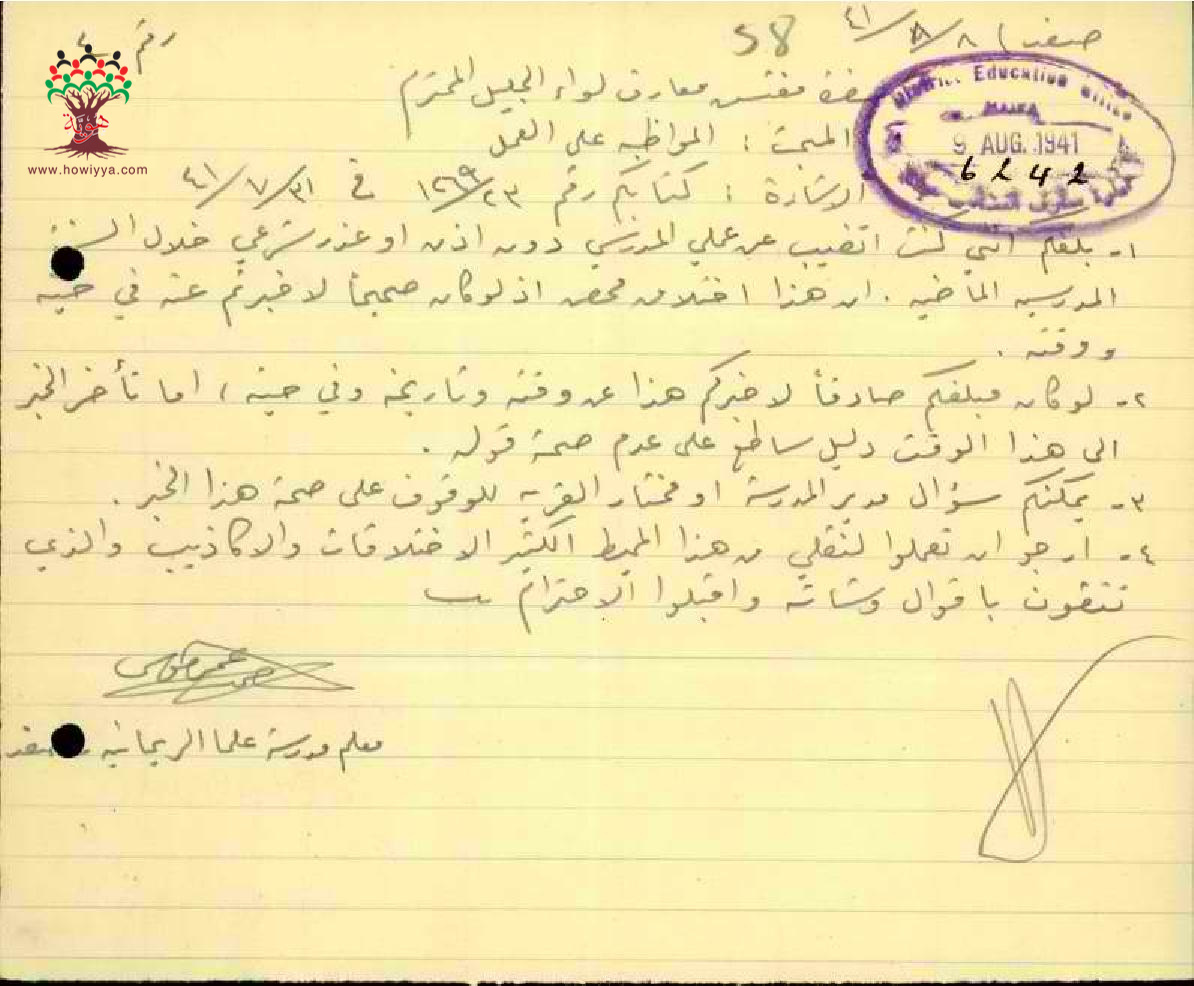 صفد ٨/٨/٤١
58
رقم ٤
هوية
www.howiyya.com
District Education Office
HAIFA
9 AUG. 1941
6242
حضرة مفتش معارف لواء الجليل المحترم
المبحث : المواظبه على العمل
الاشارة : كتابكم رقم ١٢٦٩/٢٣ في ٣١/٧/٤١
١- بلغكم انني كنت اتغيب عن عملي المدرسي دون اذن او عذر شرعي خلال السنة
المدرسيه الماضيه . ان هذا اختلاق محض اذ لو كان صحيحاً لاخبرتم عنه في حينه
ووقته .
٢- لو كان مبلغكم صادقاً لاخبركم هذا عن وقته وتاريخه وفي حينه ، اما تأخر الخبر
الى هذا الوقت دليل ساطع على عدم صحة قوله .
٣- يمكنكم سؤال مدير المدرسة او مختار القريه للوقوف على صحة هذا الخبر .
٤- ارجو ان تعملوا لنقلي من هذا المحيط الكثير الاختلاقات والاكاذيب والذي
تثقون باقوال وشاته واقبلوا الاحترام
معلم مدرسة علما الريحانيه صفد